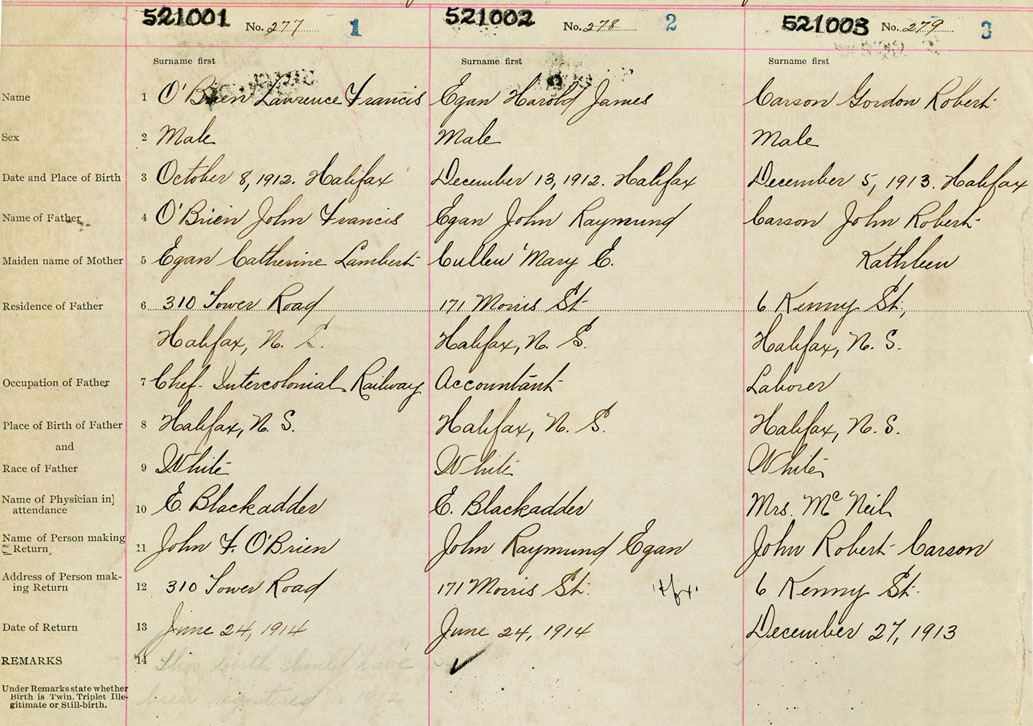 521001 No. 277 1 521002 No. 278 2 521003 No. 279 3
Surname first Surname first Surname first
Name 1 O'Brien Lawrence Francis Egan Harold James Carson Gordon Robert
Sex 2 Male Male Male
Date and Place of Birth 3 October 8, 1912. Halifax December 13, 1912. Halifax December 5, 1913. Halifax
Name of Father 4 O'Brien John Francis Egan John Raymund Carson John Robert
Maiden name of Mother 5 Egan Catherine Lambert Cullen Mary E. Kathleen
Residence of Father 6 310 Tower Road 171 Morris St. 6 Kenny St.,
Halifax, N. S. Halifax, N. S. Halifax, N. S.
Occupation of Father 7 Chef Intercolonial Railway Accountant Laborer
Place of Birth of Father 8 Halifax, N. S. Halifax, N. S. Halifax, N. S.
and
Race of Father 9 White White White
Name of Physician in attendance 10 E. Blackadder E. Blackadder Mrs. McNeil
Name of Person making Return 11 John F. O'Brien John Raymund Egan John Robert Carson
Address of Person making Return 12 310 Tower Road 171 Morris St. Hfx. 6 Kenny St.
Date of Return 13 June 24, 1914 June 24, 1914 December 27, 1913
REMARKS 14 This birth should have
been registered in 1912
Under Remarks state whether
Birth is Twin, Triplet Ille-
gitimate or Still-birth.